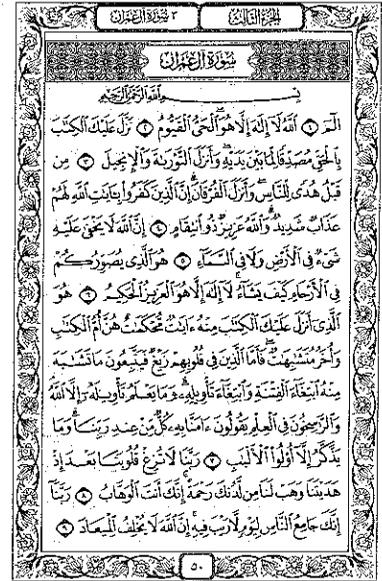 الجزء الثالث ٣ سورة آل عمران
سُورَةُ آلِ عِمْرَانَ
بِسْمِ اللَّهِ الرَّحْمَٰنِ الرَّحِيمِ
الٓمٓ ١ ٱللَّهُ لَآ إِلَٰهَ إِلَّا هُوَ ٱلْحَىُّ ٱلْقَيُّومُ ٢ نَزَّلَ عَلَيْكَ ٱلْكِتَٰبَ
بِٱلْحَقِّ مُصَدِّقًا لِّمَا بَيْنَ يَدَيْهِ وَأَنزَلَ ٱلتَّوْرَىٰةَ وَٱلْإِنجِيلَ ٣ مِن
قَبْلُ هُدًى لِّلنَّاسِ وَأَنزَلَ ٱلْفُرْقَانَ إِنَّ ٱلَّذِينَ كَفَرُوا۟ بِـَٔايَٰتِ ٱللَّهِ لَهُمْ
عَذَابٌ شَدِيدٌ وَٱللَّهُ عَزِيزٌ ذُو ٱنتِقَامٍ ٤ إِنَّ ٱللَّهَ لَا يَخْفَىٰ عَلَيْهِ
شَىْءٌ فِى ٱلْأَرْضِ وَلَا فِى ٱلسَّمَآءِ ٥ هُوَ ٱلَّذِى يُصَوِّرُكُمْ
فِى ٱلْأَرْحَامِ كَيْفَ يَشَآءُ لَآ إِلَٰهَ إِلَّا هُوَ ٱلْعَزِيزُ ٱلْحَكِيمُ ٦ هُوَ
ٱلَّذِىٓ أَنزَلَ عَلَيْكَ ٱلْكِتَٰبَ مِنْهُ ءَايَٰتٌ مُّحْكَمَٰتٌ هُنَّ أُمُّ ٱلْكِتَٰبِ
وَأُخَرُ مُتَشَٰبِهَٰتٌ فَأَمَّا ٱلَّذِينَ فِى قُلُوبِهِمْ زَيْغٌ فَيَتَّبِعُونَ مَا تَشَٰبَهَ
مِنْهُ ٱبْتِغَآءَ ٱلْفِتْنَةِ وَٱبْتِغَآءَ تَأْوِيلِهِۦ وَمَا يَعْلَمُ تَأْوِيلَهُۥٓ إِلَّا ٱللَّهُ
وَٱلرَّٰسِخُونَ فِى ٱلْعِلْمِ يَقُولُونَ ءَامَنَّا بِهِۦ كُلٌّ مِّنْ عِندِ رَبِّنَا وَمَا
يَذَّكَّرُ إِلَّآ أُو۟لُوا۟ ٱلْأَلْبَٰبِ ٧ رَبَّنَا لَا تُزِغْ قُلُوبَنَا بَعْدَ إِذْ
هَدَيْتَنَا وَهَبْ لَنَا مِن لَّدُنكَ رَحْمَةً إِنَّكَ أَنتَ ٱلْوَهَّابُ ٨ رَبَّنَآ
إِنَّكَ جَامِعُ ٱلنَّاسِ لِيَوْمٍ لَّا رَيْبَ فِيهِ إِنَّ ٱللَّهَ لَا يُخْلِفُ ٱلْمِيعَادَ ٩
٥٠